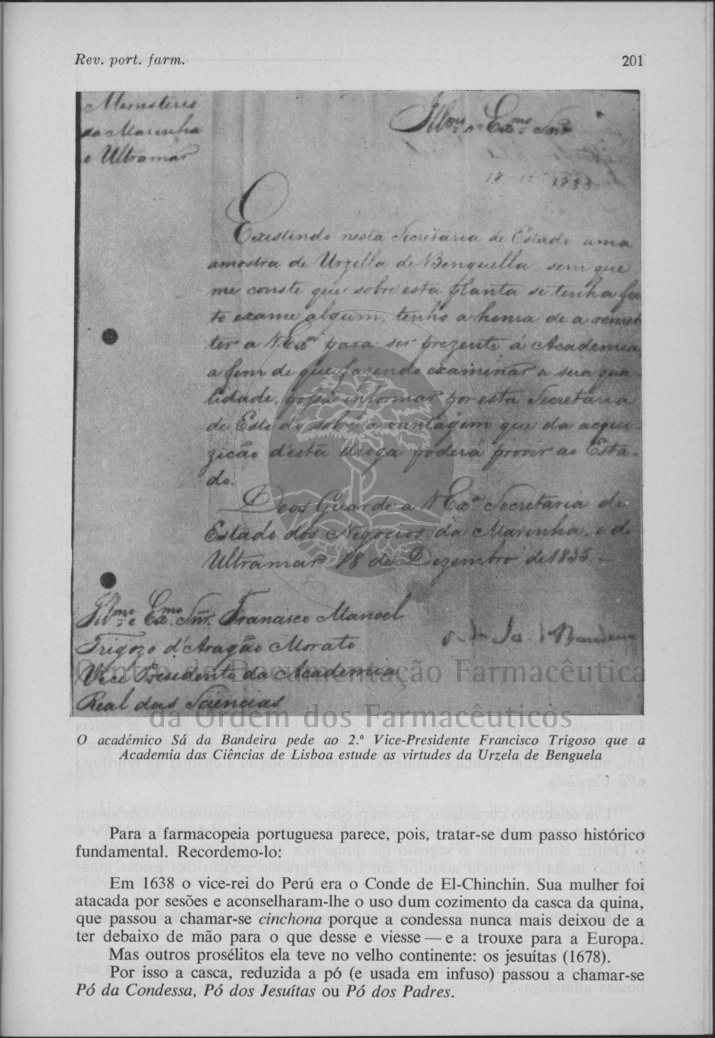 Rev. port. farm.
201
Ministerio
da Marinha
e Ultramar
Illmo e Exmo Snr
18 12 1835
Existindo nesta Secretaria de Estado uma
amostra de Urzella de Benguella, sem que
me conste que sobre esta planta se tenha fei-
to exame algum, tenho a honra de a remet-
ter a V Exa para ser prezente á Academia
a fim de que fazendo examinar a sua qua-
lidade, possa informar por esta Secretaria
de Estado sobre a vantagem que da acqui-
zição d'esta droga poderá provir ao Esta-
do.
Deos Guarde a V Exa Secretaria de
Estado dos Negocios da Marinha, e do
Ultramar 18 de Dezembro de 1835 —
Illmo e Exmo Snr. Francisco Manoel
Trigozo d'Aragão Morato
Sá da Bandeira
Vice Presidente da Academia
Real das Sciencias
Centro de Documentação Farmacêutica
da Ordem dos Farmacêuticos
O académico Sá da Bandeira pede ao 2.º Vice-Presidente Francisco Trigoso que a
Academia das Ciências de Lisboa estude as virtudes da Urzela de Benguela
Para a farmacopeia portuguesa parece, pois, tratar-se dum passo histórico
fundamental. Recordemo-lo:
Em 1638 o vice-rei do Perú era o Conde de El-Chinchin. Sua mulher foi
atacada por sesões e aconselharam-lhe o uso dum cozimento da casca da quina,
que passou a chamar-se cinchona porque a condessa nunca mais deixou de a
ter debaixo de mão para o que desse e viesse — e a trouxe para a Europa.
Mas outros prosélitos ela teve no velho continente: os jesuítas (1678).
Por isso a casca, reduzida a pó (e usada em infuso) passou a chamar-se
Pó da Condessa, Pó dos Jesuítas ou Pó dos Padres.